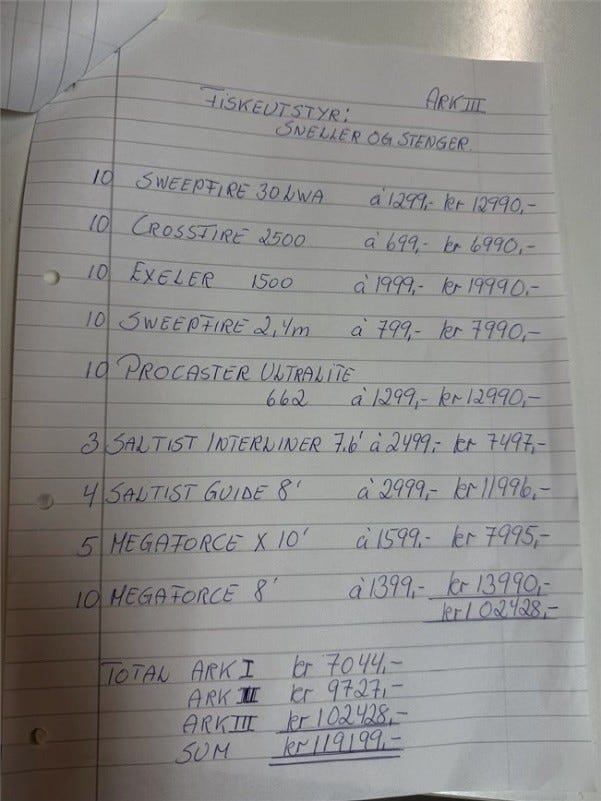 ARK III
FISKEUTSTYR:
SNELLER OG STENGER.
10 SWEEPFIRE 30LWA à 1299,- kr 12990,-
10 CROSSFIRE 2500 à 699,- kr 6990,-
10 EXELER 1500 à 1999,- kr 19990,-
10 SWEEPFIRE 2,4m à 799,- kr 7990,-
10 PROCASTER ULTRALITE
662 à 1299,- kr 12990,-
3 SALTIST INTERLINER 7,6' à 2499,- kr 7497,-
4 SALTIST GUIDE 8' à 2999,- kr 11996,-
5 MEGAFORCE X 10' à 1599,- kr 7995,-
10 MEGAFORCE 8' à 1399,- kr 13990,-
kr 102428,-
TOTAL ARK I kr 7044,-
ARK II kr 9727,-
ARK III kr 102428,-
SUM kr 119199,-